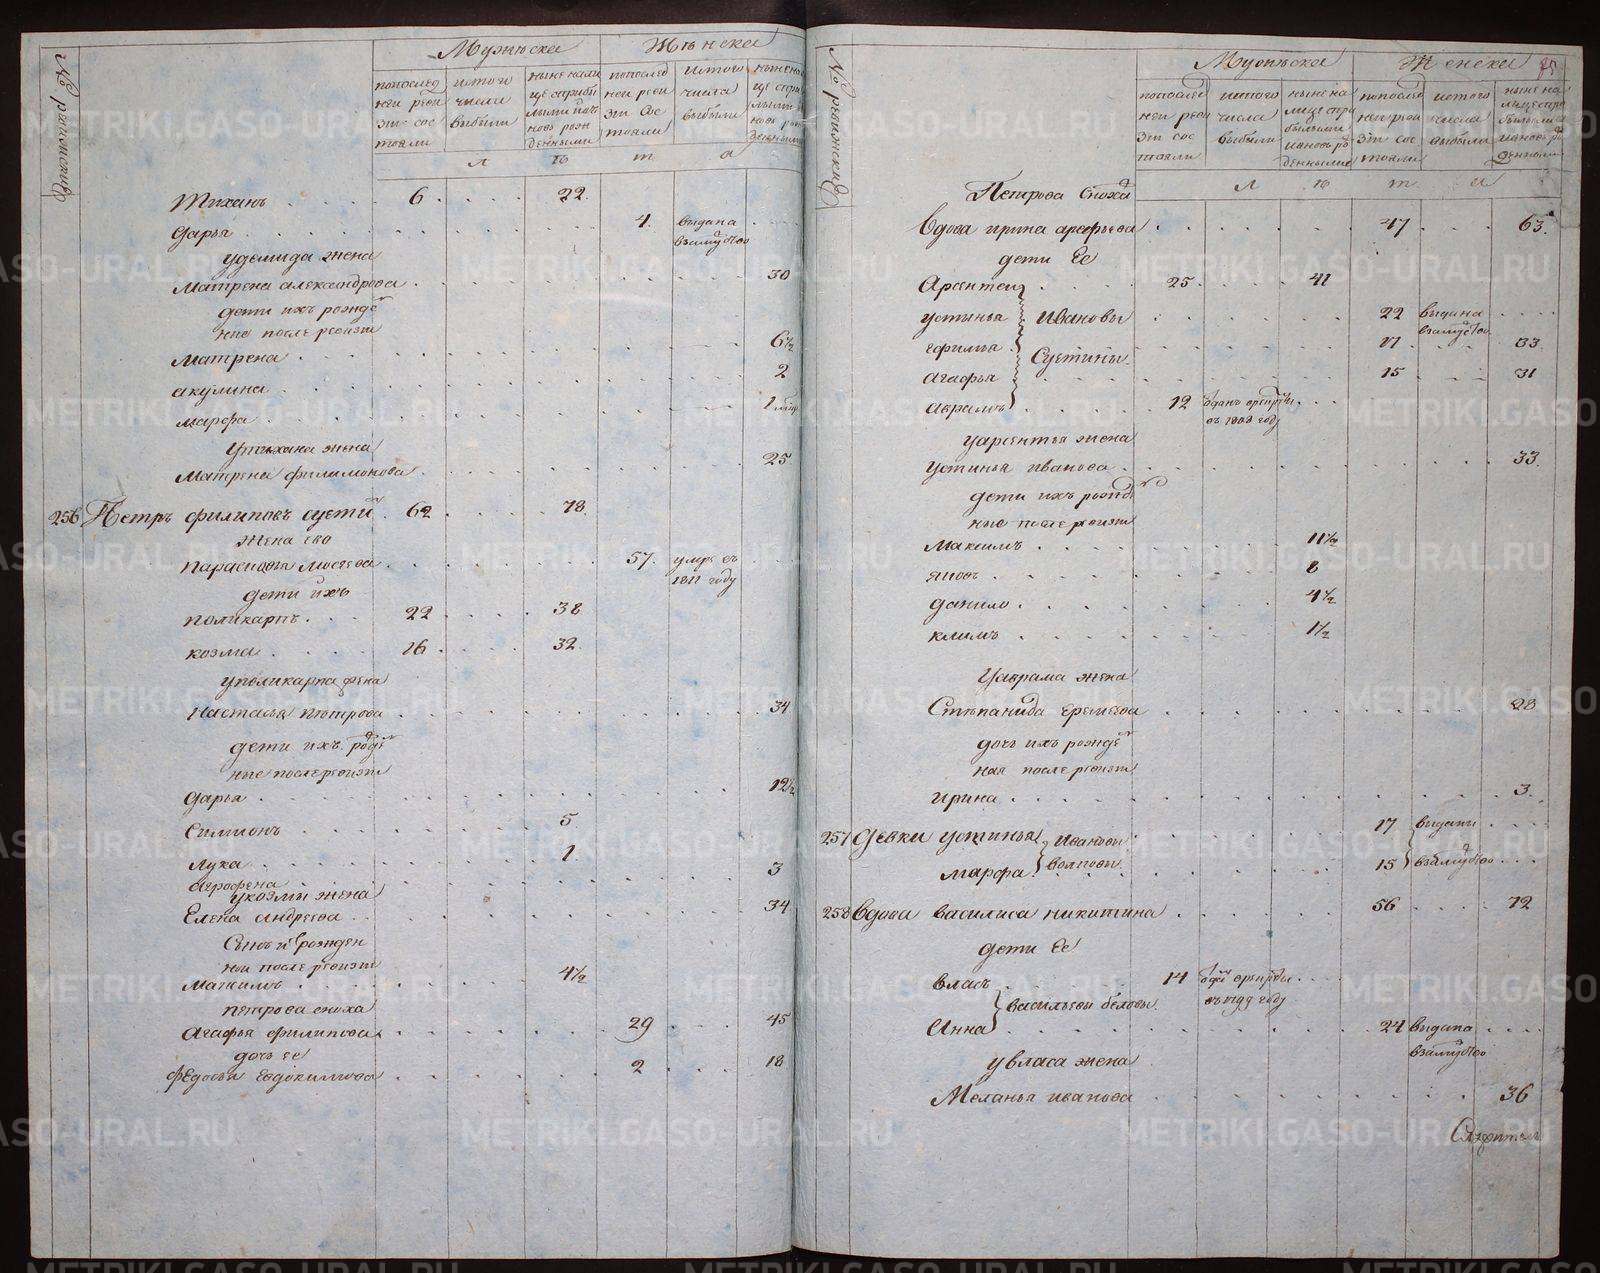 № ревижский
Мужеска
Женска
попослед
ней реви
зии сос
тояли
изтого
числа
выбыли
ныне нали
це сприбы
лыми и въ
новь рож
денными
попослед
ней реви
зии сос
тояли
изтого
числа
выбыли
л е т а
Тиханъ 6 22
Дарья 4 выдана
взамуство
удемида жена
Матрена александрова 30
дети ихъ рожде
ные после ревизии
Матрена 6½
акулина 2
марфа
утихана жена
Матрена филимонова 25
256 Петръ филиповъ суети 62 78
жена ево
парасковья 57 умре въ
1811 году
дети ихъ
поликарпъ 22 38
козма 16 32
уполикарпа жена
Настасья петрова 34
дети ихъ рожде
ные после ревизии
дарья 12½
Симионъ 5
лука 1
аграфена 3
укозмы жена
Елена андреева 34
Сынъ их рожден
ной после ревизии
Максимъ 4½
петрова сноха
Агафья филипова 29 45
дочь ее
федосья евдокимова 2 18
№ ревижский
Мужеска
Женска
75
попослед
ней реви
зии сос
тояли
изтого
числа
выбыли
ныне на
лице спри
былыми
и вновь ро
жденными
попослед
ней реви
зии сос
тояли
изтого
числа
выбыли
л е т а
Петрова сноха
вдова ирина арефьева 47 63
дети Ее
Арсентей 25 41
устинья Ивановы 22 выдана
взамуство
ефимья Суетины 17 33
агафья 15 31
аврамъ 12 въ 1808 году
уарсентья жена
устинья иванова 33
дети ихъ рожде
ные после ревизии
Максимъ 11½
яковъ 8
данило 4½
климъ 1½
Уаврама жена
Степанида еремеева 28
дочь ихъ рожде
ная после ревизии
ирина 3
257 Девки устинья Ивановы 17 выданы
марфа волковы 15 взамуство
258 вдова василиса никитина 56 72
дети Ее
власъ 14
васильевы беловы въ 1799 году
Анна 24 выдана
взамуство
увласа жена
Меланья иванова 36
METRIKI.GASO-URAL.RU